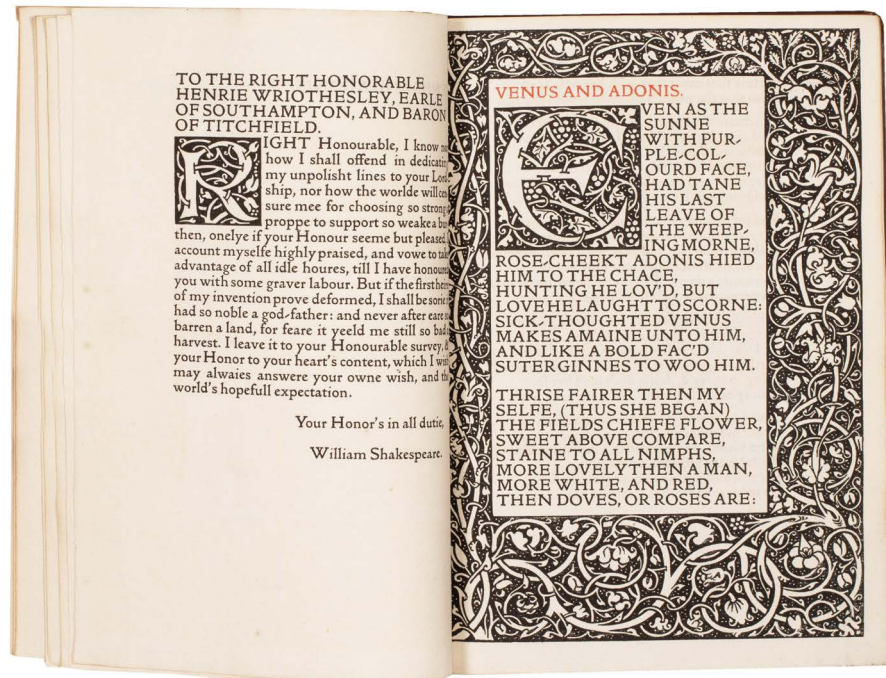 TO THE RIGHT HONORABLE
HENRIE WRIOTHESLEY, EARLE
OF SOUTHAMPTON, AND BARON
OF TITCHFIELD.
RIGHT Honourable, I know
how I shall offend in dedicating
my unpolisht lines to your Lord
ship, nor how the worlde will cen
sure mee for choosing so strong
proppe to support so weake a bur
then, onelye if your Honour seeme but pleased,
account myselfe highly praised, and vowe to take
advantage of all idle houres, till I have honoured
you with some graver labour. But if the first heire
of my invention prove deformed, I shall be sorie
had so noble a god-father: and never after eare so
barren a land, for feare it yeeld me still so bad
harvest. I leave it to your Honourable survey, &
your Honor to your heart's content, which I wish
may alwaies answere your owne wish, and the
world's hopefull expectation.
Your Honor's in all dutie,
William Shakespeare.
VENUS AND ADONIS.
EVEN AS THE
SUNNE
WITH PUR-
PLE-COL-
OURD FACE,
HAD TANE
HIS LAST
LEAVE OF
THE WEEP-
ING MORNE,
ROSE-CHEEKT ADONIS HIED
HIM TO THE CHACE,
HUNTING HE LOV'D, BUT
LOVE HE LAUGHT TO SCORNE:
SICK-THOUGHTED VENUS
MAKES AMAINE UNTO HIM,
AND LIKE A BOLD FAC'D
SUTER GINNES TO WOO HIM.
THRISE FAIRER THEN MY
SELFE, (THUS SHE BEGAN)
THE FIELDS CHIEFE FLOWER,
SWEET ABOVE COMPARE,
STAINE TO ALL NIMPHS,
MORE LOVELY THEN A MAN,
MORE WHITE, AND RED,
THEN DOVES, OR ROSES ARE: